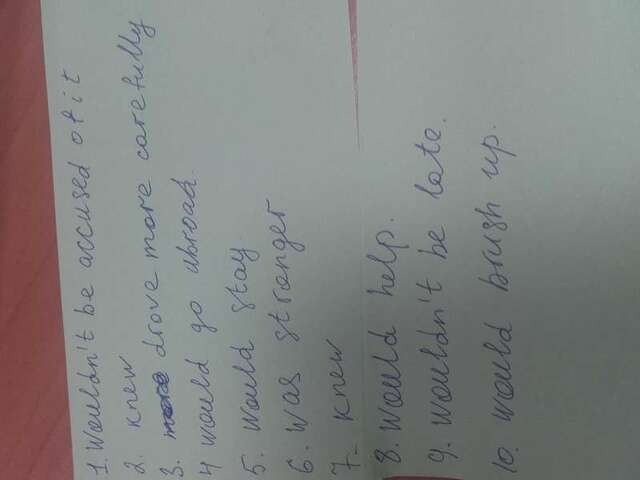 1. Wouldn't be accused of it
2. knew
3. drove more carefully
4 would go abroad.
5. Would stay.
6. was stronger
7- knew
8. Would help.
9. wouldn't be late.
10. would brush up.